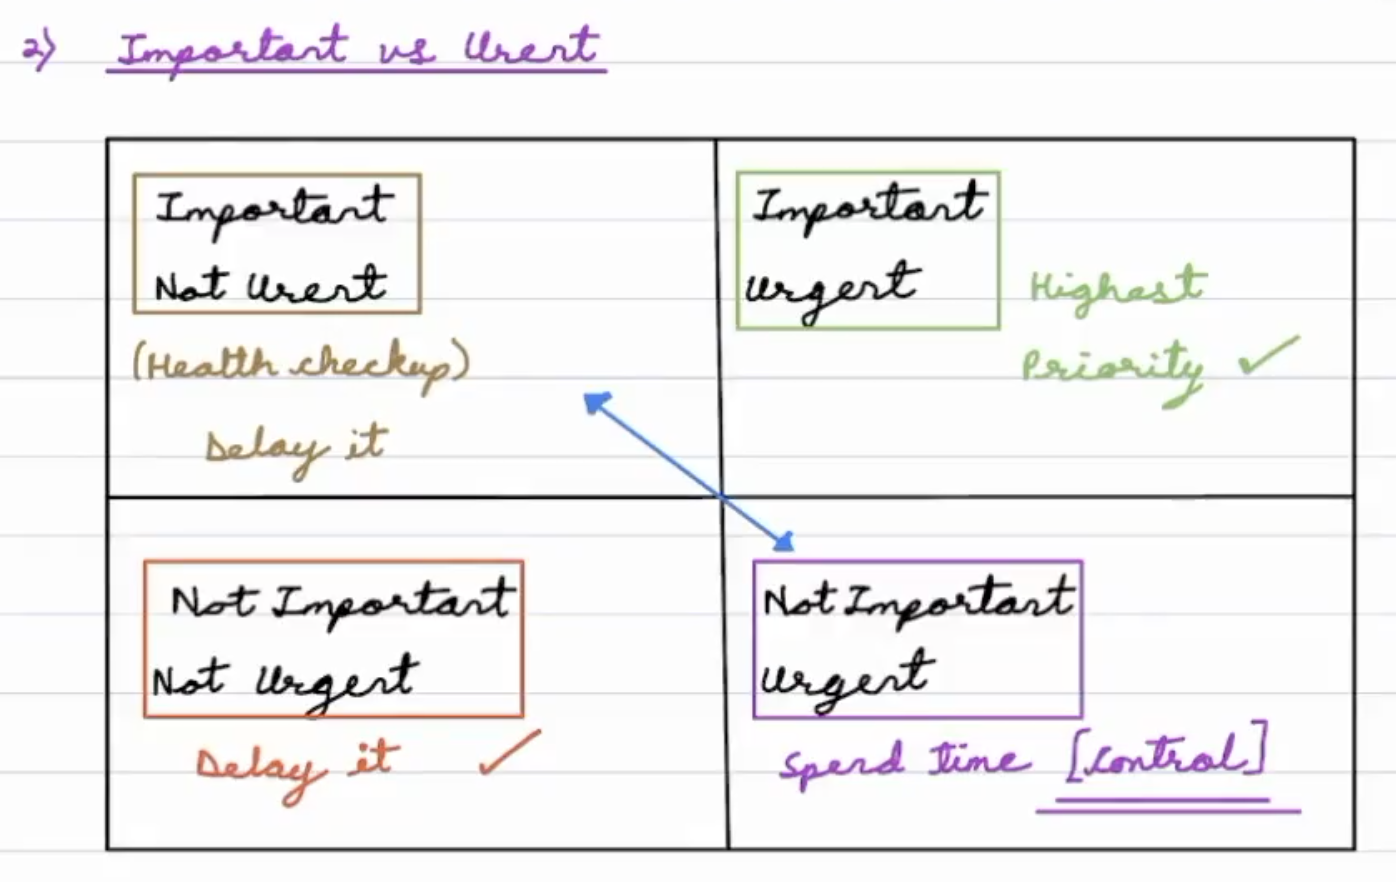 2) Important vs Urent
Important
Not Urent
(Health checkup)
Delay it
Important
Urgent
Highest
Priority ✓
Not Important
Not Urgent
Delay it ✓
Not Important
Urgent
Spend time [control]